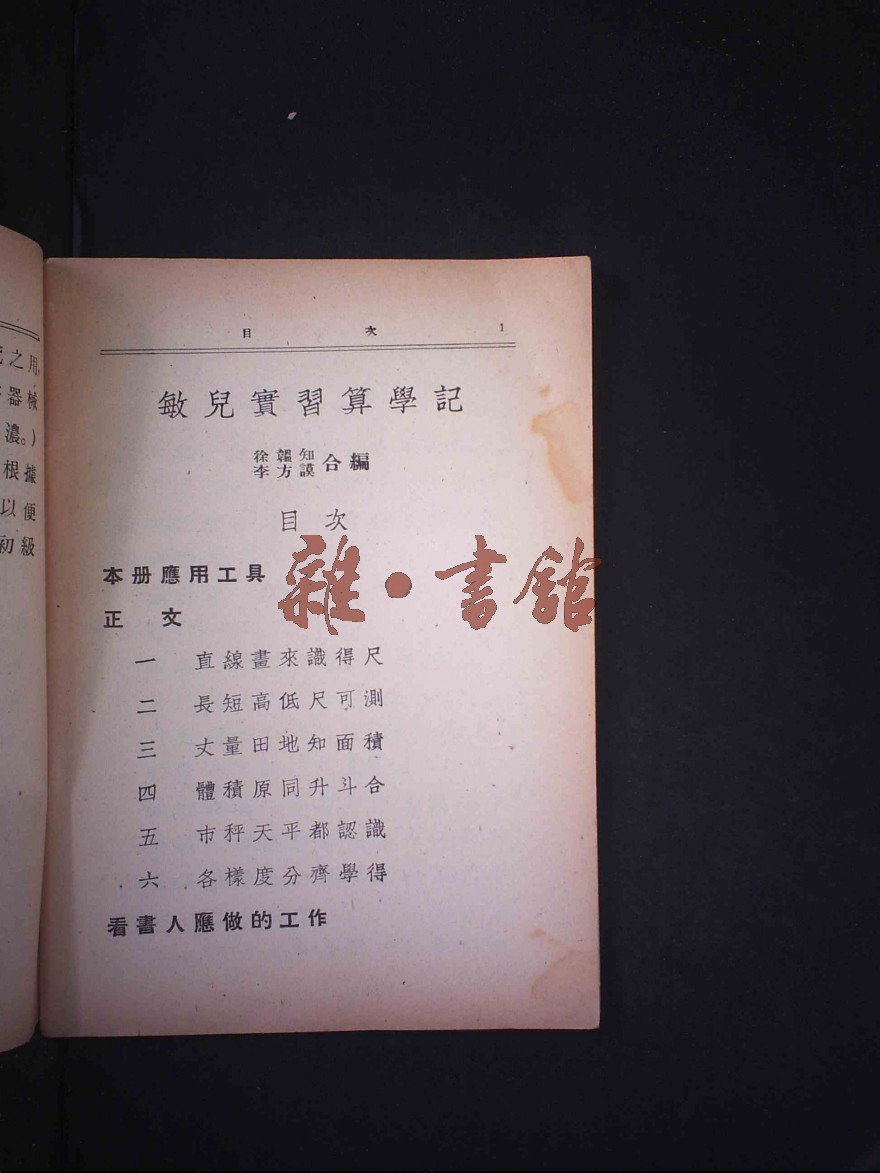 目次 1
敏兒實習算學記
徐韞知
李方謨 合編
目次
本册應用工具
正文
一 直線畫來識得尺
二 長短高低尺可測
三 丈量田地知面積
四 體積原同升斗合
五 市秤天平都認識
六 各樣度分齊學得
看書人應做的工作
雜·書館
之用,
器械
濃。)
根據
以便
初級